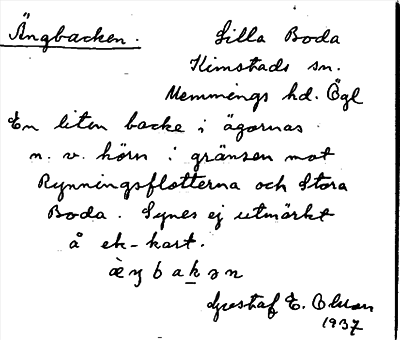 Ängbacken.
Lilla Boda
Kimstads sn.
Memmings hd. Ögl
En liten backe i ägornas
n. v. hörn i gränsen mot
Rynningsflotterna och Stora
Boda. Synes ej utmärkt
å ek-kart.
Gustaf E. Olsson
1937